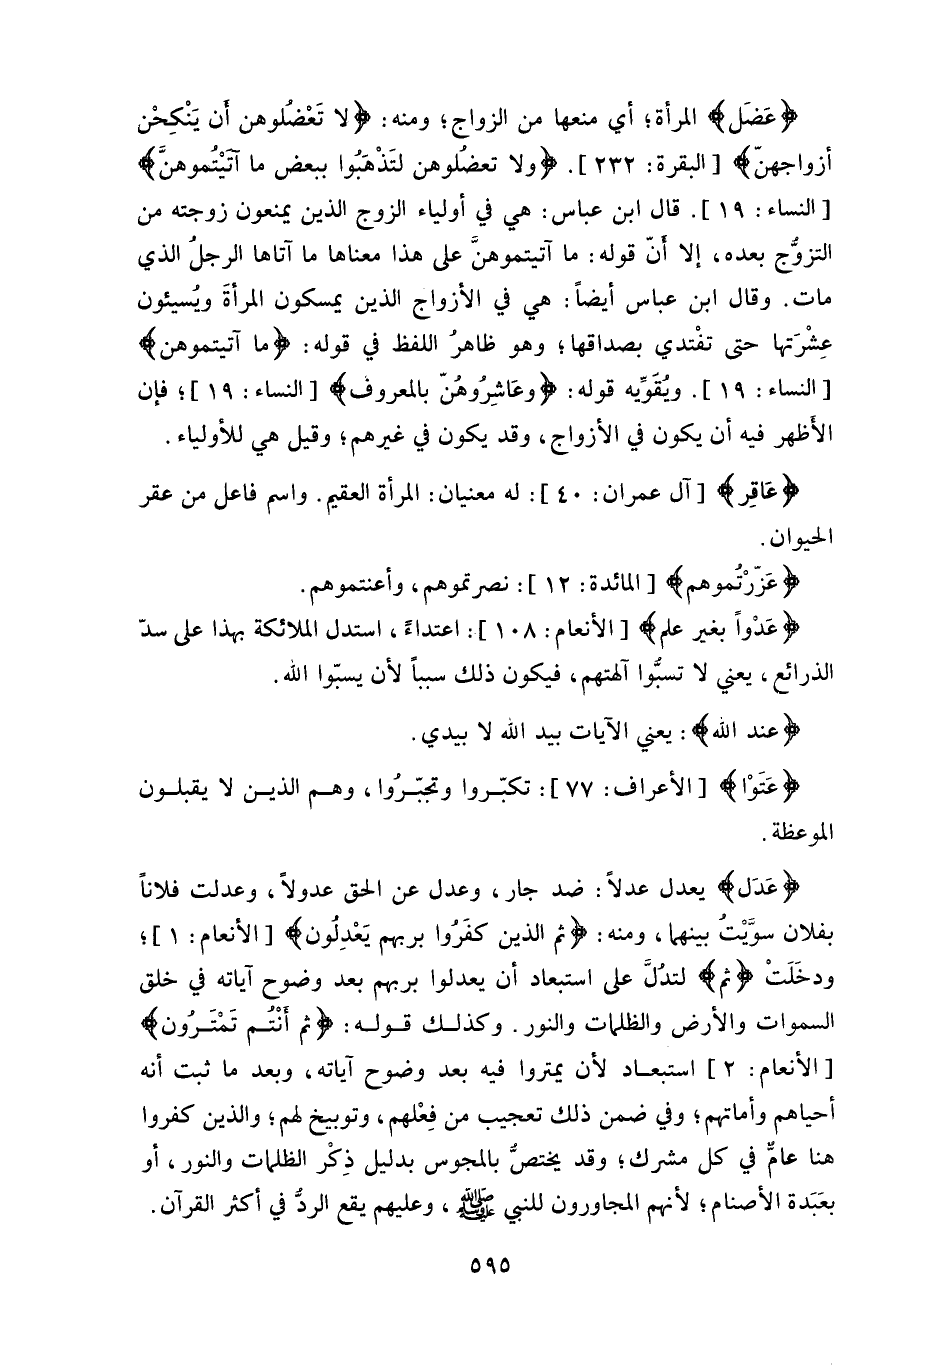 ﴿عَضَل﴾ المرأة؛ أي منعها من الزواج؛ ومنه: ﴿لا تَعْضُلوهن أَن يَنْكِحْن
أزواجهنّ﴾ [ البقرة: ٢٣٢ ]. ﴿ولا تعضُلوهن لتَذْهَبُوا ببعض ما آتَيْتُموهنَّ﴾
[ النساء: ١٩ ]. قال ابن عباس: هي في أولياء الزوج الذين يمنعون زوجته من
التزوُّج بعده، إلا أَنّ قوله: ما آتيتموهنَّ على هذا معناها ما آتاها الرجلُ الذي
مات. وقال ابن عباس أيضاً: هي في الأزواج الذين يمسكون المرأةَ ويُسيئون
عِشْرَتها حتى تفْتدي بصداقها؛ وهو ظاهرُ اللفظ في قوله: ﴿ما آتيتموهن﴾
[ النساء: ١٩ ]. ويُقَوِّيه قوله: ﴿وعَاشِرُوهُنّ بالمعروف﴾ [ النساء: ١٩ ]؛ فإن
الأَظهر فيه أن يكون في الأزواج، وقد يكون في غيرهم؛ وقيل هي للأولياء.
﴿عَاقِر﴾ [ آل عمران: ٤٠ ]: له معنيان: المرأة العقيم. واسم فاعل من عقر
الحيوان.
﴿عَزّرْتُموهم﴾ [ المائدة: ١٢ ]: نصرتموهم، وأعنتموهم.
﴿عَدْواً بغير علم﴾ [ الأنعام: ١٠٨ ]: اعتداءً، استدل الملائكة بهذا على سدّ
الذرائع، يعني لا تسبُّوا آلهتهم، فيكون ذلك سبباً لأن يسبّوا الله.
﴿عند الله﴾: يعني الآيات بيد الله لا بيدي.
﴿عَتَوْا﴾ [ الأعراف: ٧٧ ]: تكبّروا وتجبّرُوا، وهم الذين لا يقبلون
الموعظة.
﴿عَدَل﴾ يعدل عدلاً: ضد جار، وعدل عن الحق عدولاً، وعدلت فلاناً
بفلان سوَّيْتُ بينهما، ومنه: ﴿ثم الذين كفَرُوا بربهم يَعْدِلُون﴾ [ الأنعام: ١ ]؛
ودخَلَتْ ﴿ثم﴾ لتدُلَّ على استبعاد أن يعدلوا بربهم بعد وضوح آياته في خلق
السموات والأرض والظلمات والنور. وكذلك قوله: ﴿ثم أَنْتُم تَمْتَرُون﴾
[ الأنعام: ٢ ] استبعاد لأن يمتروا فيه بعد وضوح آياته، وبعد ما ثبت أنه
أحياهم وأماتهم؛ وفي ضمن ذلك تعجيب من فِعْلهم، وتوبيخ لهم؛ والذين كفروا
هنا عامٌّ في كل مشرك؛ وقد يختصُّ بالمجوس بدليل ذِكْر الظلمات والنور، أو
بعَبَدة الأصنام؛ لأنهم المجاورون للنبي ﷺ، وعليهم يقع الردُّ في أكثر القرآن.
٥٩٥